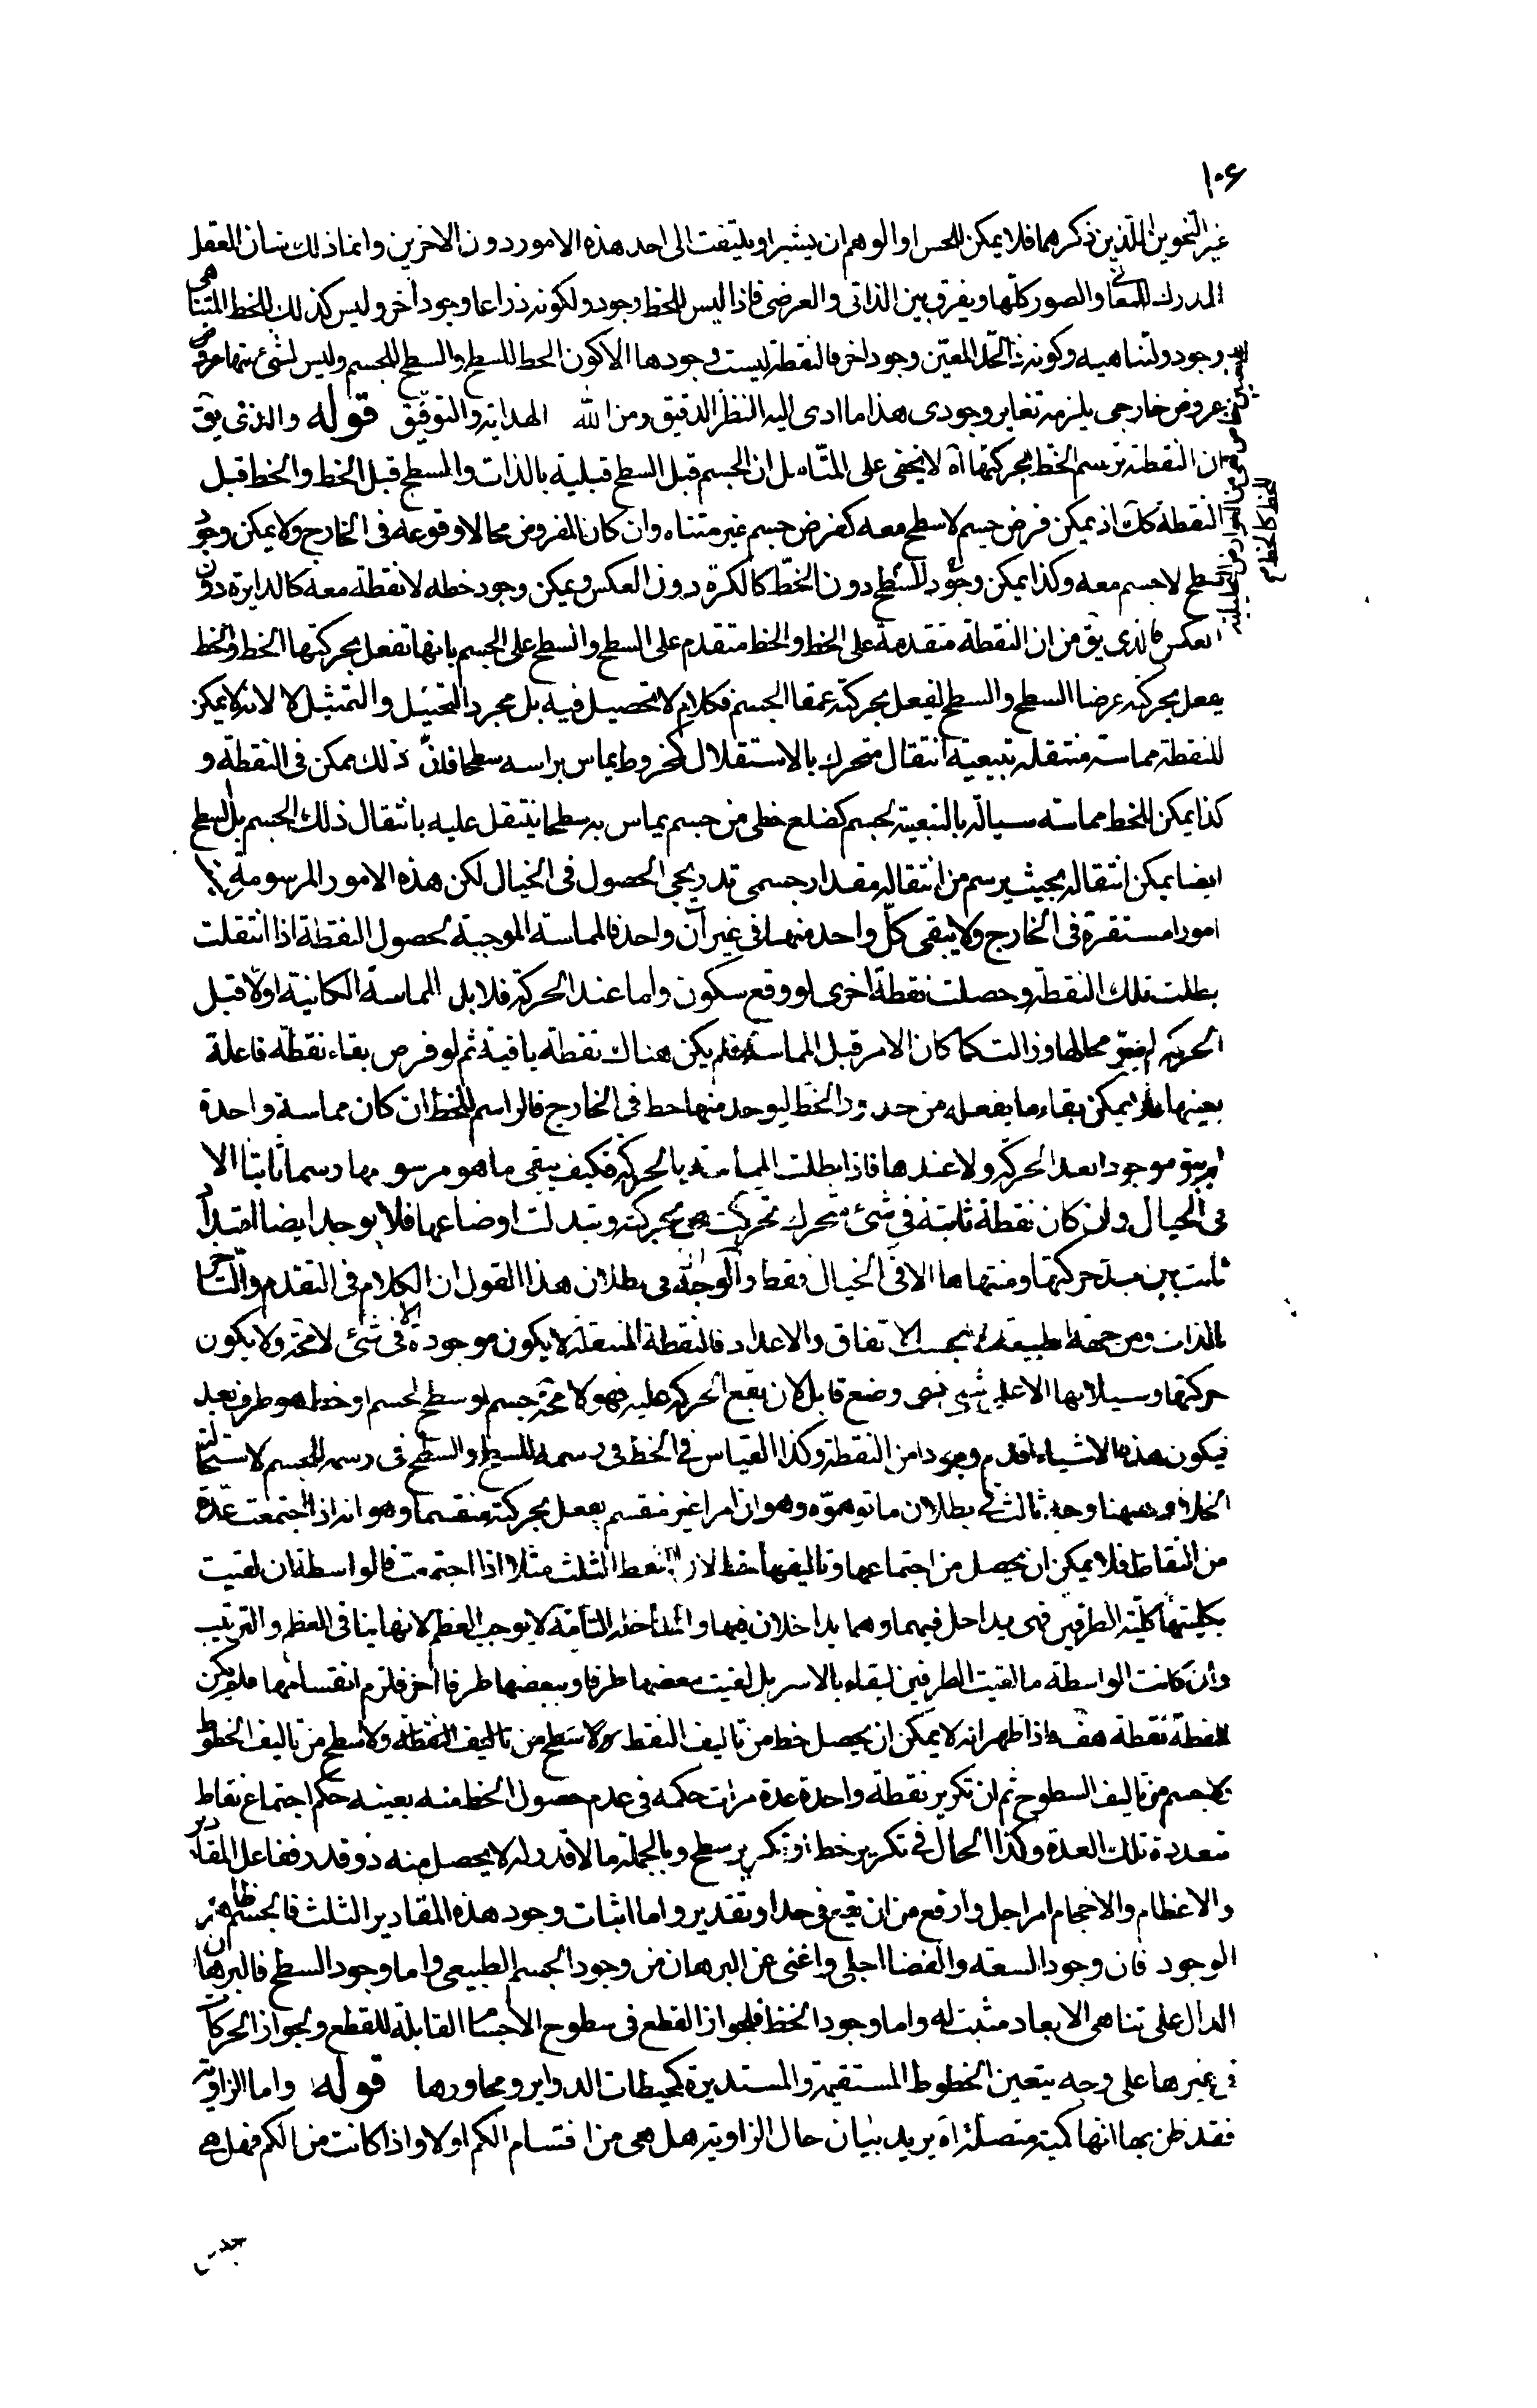 ١٠٦
غير النحوين اللذين ذكرهما فلا يمكن للحس او الوهم ان يشير او يلتفت الى احد هذه الامور دون الاخرين وانما ذلك شان العقل
المدرك للمعانى والصور كلها ويفرق بين الذاتى والعرضى فاذا ليس للخط وجود ولكونه ذراعا وجود آخر وليس كذلك للخط المتناهى
وجود ولتناهيه وكونه ذا الحد المعين وجود اخر فالنقطة ليست وجودها الا كون الخط للسطح والسطح للجسم وليس لشئ منها عروض
عروض خارجى يلزمه تغاير وجودى هذا ما ادى اليه النظر الدقيق ومن الله الهداية والتوفيق قوله والذى يق
من ان النقطة ترسم الخط بحركتها آه لا يخفى على المتامل ان الجسم قبل السطح قبلية بالذات والسطح قبل الخط والخط قبل
النقطة كك اذ يمكن فرض جسم لا سطح معه كفرض جسم غير متناه وان كان المفروض محالا وقوعه فى الخارج ولا يمكن وجود
سطح لا جسم معه وكذا يمكن وجود للسطح دون الخط كالكرة دون العكس ويمكن وجود خط لا نقطة معه كالدايرة دون
العكس فالذى يق من ان النقطة متقدمة على الخط والخط متقدم على السطح والسطح على الجسم بانها تفعل بحركتها الخط والخط
يفعل بحركته عرضا السطح والسطح يفعل بحركته عمقا الجسم فكلام لا تحصيل فيه بل مجرد التخيل والتمثيل لا لانه لا يمكن
للنقطة مماسة منتقلة بتبعية انتقال متحرك بالاستقلال كمخروط يماس براسه سطحا فان ذلك ممكن فى النقطة و
كذا يمكن للخط مماسة سيالة بالتبعية لجسم كضلع خطى من جسم يماس به سطحا ينتقل عليه بانتقال ذلك الجسم بل السطح
ايضا يمكن انتقاله بحيث يرسم من انتقاله مقدار جسمى تدريجى الحصول فى الخيال لكن هذه الامور المرسومة
امورا مستقرة فى الخارج ولا يبقى كل واحد منها فى غير آن واحد فالمماسة الموجبة لحصول النقطة اذا انتقلت
بطلت تلك النقطة وحصلت نقطة اخرى لو وقع سكون واما عند الحركة فلا بل المماسة الكانية اولا قبل
الحركة لم يبق محالها وزالت كما كان الامر قبل المماسة فلم يكن هناك نقطة باقية ثم لو فرض بقاء نقطة فاعلة
بعينها فلا يمكن بقاء ما يفعله من حدود الخط ليوجد منها خط فى الخارج فالراسم للخط ان كان مماسة واحدة
لم يبق موجودا بعد الحركة ولا عندها فاذا بطلت المماسة بالحركة فكيف يبقى ما هو مرسومها رسما ثابتا الا
فى الخيال وان كان نقطة ثابتة فى شئ متحرك تحركت بحركته وتبدلت اوضاعها فلا يوجد ايضا امتداد
ثابت بين مبدء حركتها ومنتهاها الا فى الخيال فقط والوجه الثانى فى بطلان هذا القول ان الكلام فى التقدم والتاخر
بالذات ومن جهة الطبيعة لا بحسب الاتفاق والاعداد فالنقطة المنتقلة لا يكون موجودة الا فى شئ لا محة ولا يكون
حركتها وسيلانها الا على شئ ذى وضع قابل لان يقع الحركة عليه فهو لا محة جسم او سطح لجسم او خط هو طرف بعد
فيكون هذه الاشياء اقدم وجودا من النقطة وكذا القياس فى الخط فى رسمه للسطح والسطح فى رسمه للجسم لاستحالة
الخلاء وههنا وجه ثالث فى بطلان ما توهموه وهو ان امرا غير منقسم يفعل بحركته منقسما وهو انه اذا اجتمعت عدة
من النقاط فلا يمكن ان يحصل من اجتماعها وتاليفها خط لان النقط الثلث مثلا اذا اجتمعت فالواسطة ان لقيت
بكليتها كلية الطرفين فهى يداخل فيهما وهما يداخلان فيها والمداخلة التامة لا يوجب العظم لانها ينافى العظم والترتيب
وان كانت الواسطة ما لقيت الطرفين لقاء بالاسر بل لقيت ببعضها طرفا وببعضها طرفا آخر فلزم انقسامها فلم يكن
النقطة نقطة هف فاذا ظهر انه لا يمكن ان يحصل خط من تاليف النقط ولا سطح من تاليف النقطة ولا سطح من تاليف الخطوط
ولا جسم من تاليف السطوح ثم ان تكرير نقطة واحدة عدة مرات حكمه فى عدم حصول الخط منه بعينه حكم اجتماع نقاط
متعددة تلك العدة وكذا الحال فى تكرير خط او تكرير سطح وبالجملة ما لا قدر له لا يحصل منه ذو قدر ففاعل المقادير
والاعظام والاحجام امر اجل وارفع من ان يقع فى حد او تقدير واما اثبات وجود هذه المقادير الثلث فالجسم ظاهر
الوجود فان وجود السعة والفضا اجلى واغنى عن البرهان من وجود الجسم الطبيعى واما وجود السطح فالبرهان
الدال على تناهى الابعاد مثبت له واما وجود الخط فلجواز القطع فى سطوح الاجسام القابلة للقطع ولجواز الحركات
فى غيرها على وجه يتعين الخطوط المستقيمة والمستديرة كمحيطات الدواير ومحاورها قوله واما الزاوية
فقد ظن بها انها كمية متصلة آه يريد بيان حال الزاوية هل هى من اقتسام الكم او لا واذا كانت من الكم فهل هى